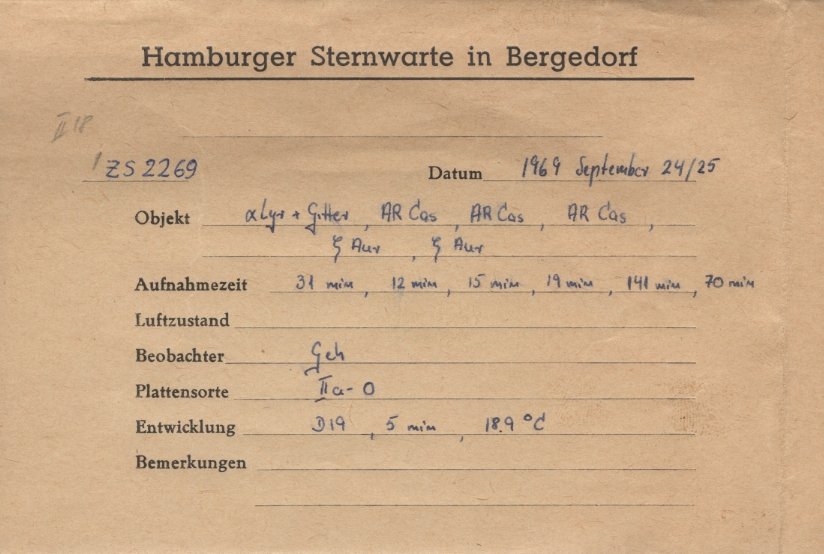 Hamburger Sternwarte in Bergedorf
II 18
ZS 2269 Datum 1969 September 24/25
Objekt α Lyr + Gitter, AR Cas, AR Cas, AR Cas,
ζ Aur, ζ Aur
Aufnahmezeit 31 min, 12 min, 15 min, 19 min, 141 min, 70 min
Luftzustand
Beobachter Geh
Plattensorte IIa-O
Entwicklung D19, 5 min, 18.9 °C
Bemerkungen